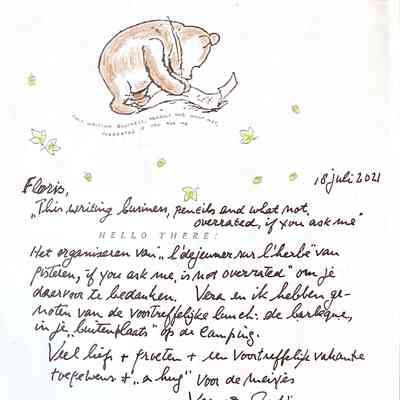 THIS WRITING BUSINESS. PENCILS AND WHAT NOT.
OVERRATED IF YOU ASK ME
Floris,
18 juli 2021
"This writing business, pencils and what not,
overrated, if you ask me"
HELLO THERE!
Het organiseren van "l'dejeuner sur l'herbe" van
gisteren, "if you ask me, is not overrated" om je
daarvoor te bedanken. Vera en ik hebben ge-
noten van de voortreffelijke lunch: de barbeque,
in je "buitenplaats" op de camping.
Veel liefs + groeten + een voortreffelijk vakantie
toegewenst + "a hug" voor de meisjes